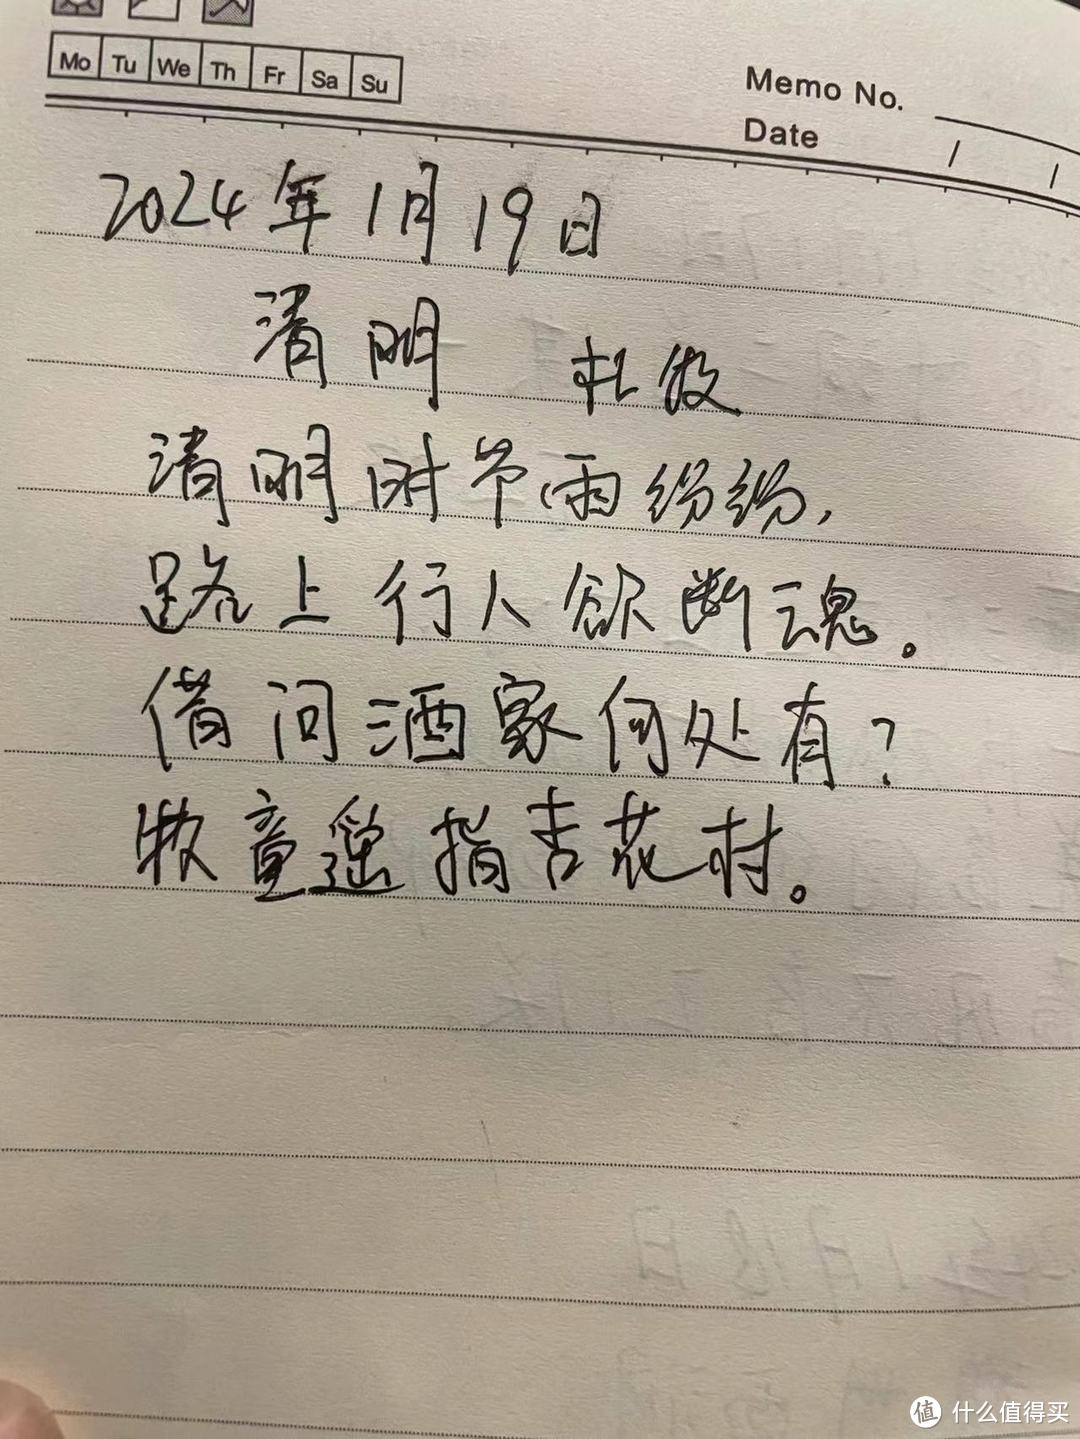 Mo Tu We Th Fr Sa Su
Memo No.
Date / /
2024年1月19日
清明 杜牧
清明时节雨纷纷,
路上行人欲断魂。
借问酒家何处有?
牧童遥指杏花村。
值 什么值得买